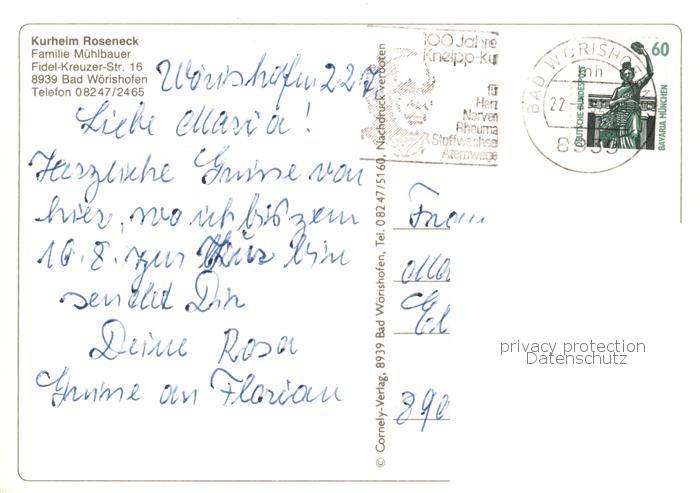 Kurheim Roseneck
Familie Mühlbauer
Fidel-Kreuzer-Str. 16
8939 Bad Wörishofen
Telefon 08247/2465
Wörishofen 22.7.
Liebe Maria!
Herzliche Grüsse von
hier, wo ich bis zum
10.8. zur Kur bin
sendet Dir
Deine Rosa
Grüsse an Florian
© Cornely-Verlag, 8939 Bad Wörishofen, Tel. 08247/5160, Nachdruck verboten
100 Jahre
Kneipp-Kur
für
Herz
Nerven
Rheuma
Stoffwechsel
Atemwege
BAD WÖRISHOFEN
mh
22.
8939
60
DEUTSCHE BUNDESPOST
BAVARIA MÜNCHEN
Frau
Ma
El
890
privacy protection
Datenschutz